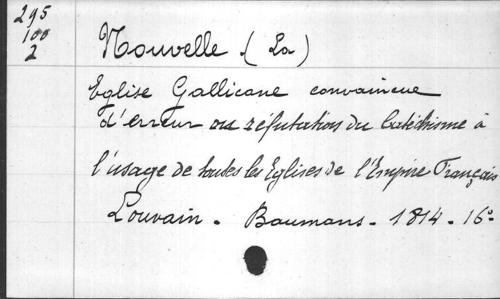 295
100
2
Nouvelle (La)
Eglise Gallicane convaincue
d'erreur ou réfutation du Catéchisme à
l'usage de toutes les Eglises de l'Empire Français
Louvain - Baumans - 1814 - 16°